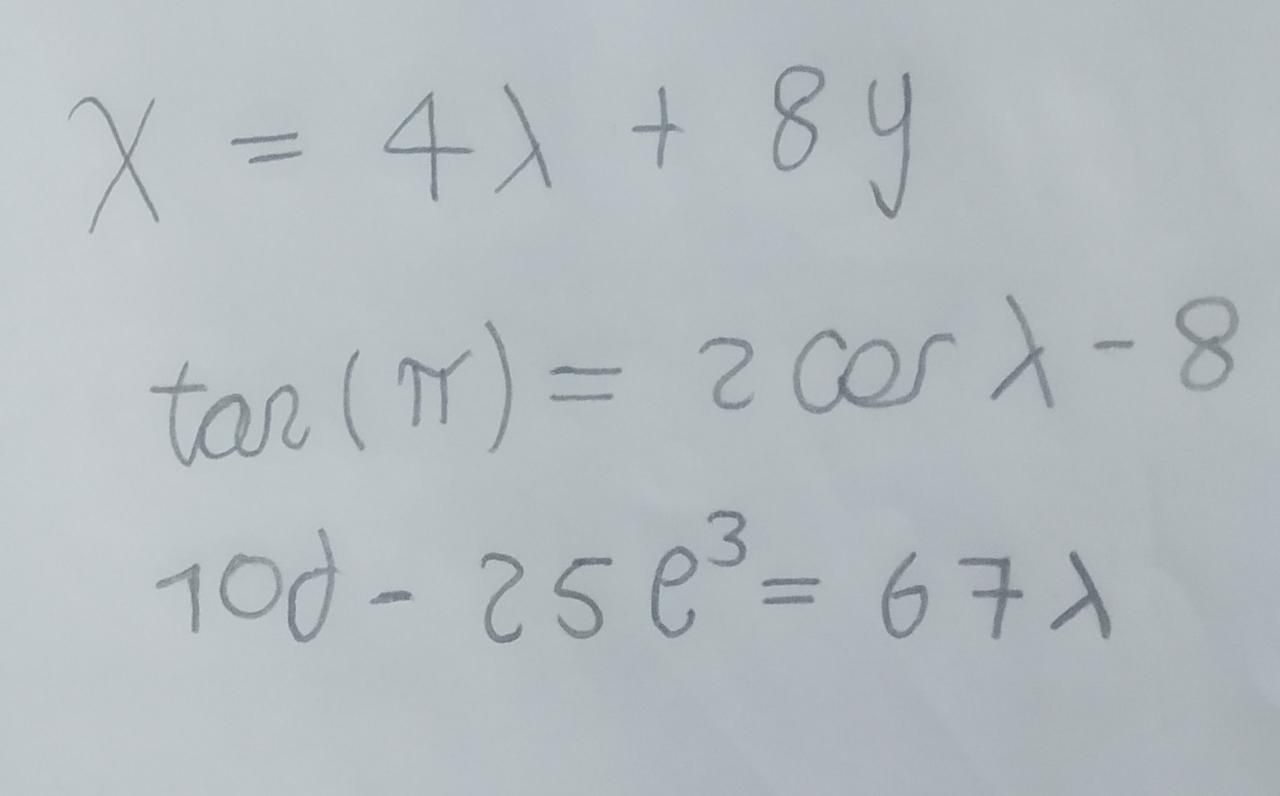 x = 4λ + 8y
tan(π) = 2 cos λ - 8
10d - 25e³ = 67λ